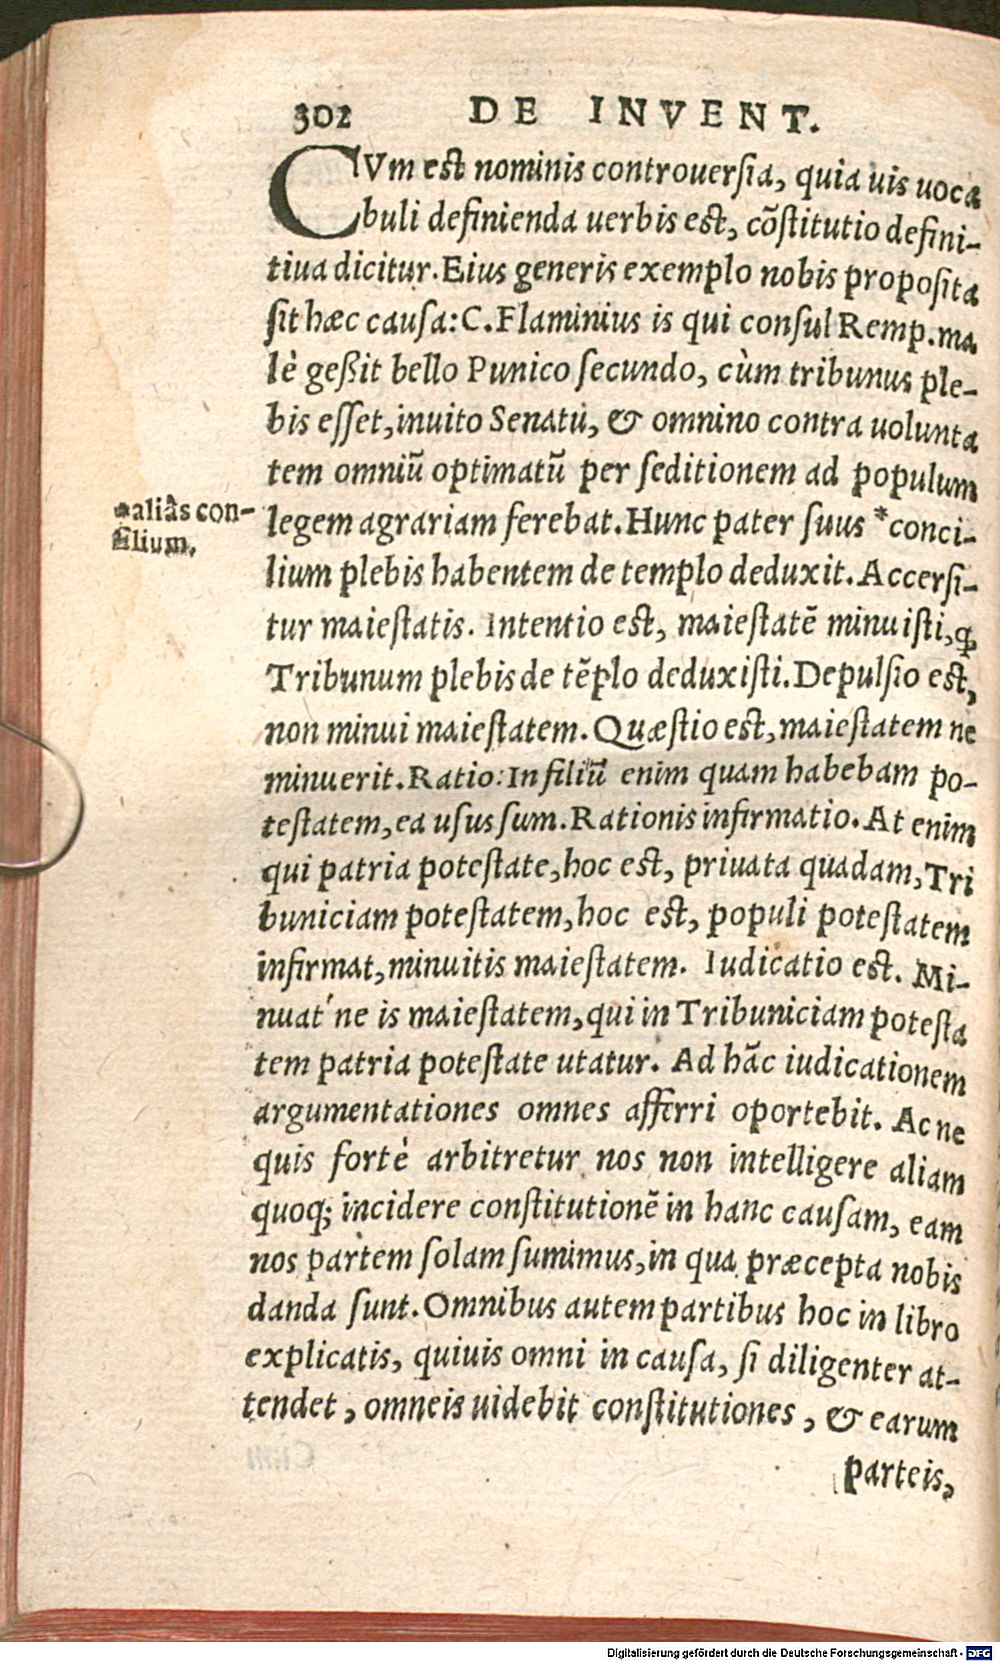 302 DE INVENT.
CVm est nominis controuersia, quia uis uoca
buli definienda uerbis est, cõstitutio defini-
tiua dicitur. Eius generis exemplo nobis proposita
sit hæc causa: C. Flaminius is qui consul Remp. ma
lè geßit bello Punico secundo, cùm tribunus ple-
bis esset, inuito Senatu, & omnino contra uolunta
tem omniũ optimatũ per seditionem ad populum
legem agrariam ferebat. Hunc pater suus *conci-
*aliâs con-
silium.
lium plebis habentem de templo deduxit. Accersi-
tur maiestatis. Intentio est, maiestatẽ minuisti, ꝙ
Tribunum plebis de tẽplo deduxisti. Depulsio est,
non minui maiestatem. Quæstio est, maiestatem ne
minuerit. Ratio: In filiũ enim quam habebam po-
testatem, ea usus sum. Rationis infirmatio. At enim
qui patria potestate, hoc est, priuata quadam, Tri
buniciam potestatem, hoc est, populi potestatem
infirmat, minuitis maiestatem. Iudicatio est. Mi-
nuat' ne is maiestatem, qui in Tribuniciam potesta
tem patria potestate utatur. Ad hãc iudicationem
argumentationes omnes afferri oportebit. Ac ne
quis fortè arbitretur nos non intelligere aliam
quoq; incidere constitutionẽ in hanc causam, eam
nos partem solam sumimus, in qua præcepta nobis
danda sunt. Omnibus autem partibus hoc in libro
explicatis, quiuis omni in causa, si diligenter at-
tendet, omneis uidebit constitutiones, & earum
parteis,
Digitalisierung gefördert durch die Deutsche Forschungsgemeinschaft - DFG